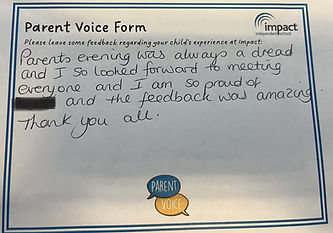 Parent Voice Form
impact
independent school
Please leave some feedback regarding your child's experience at Impact:
Parents evening was always a dread
and I so looked forward to meeting
everyone and I am so proud of
and the feedback was amazing
Thank you all.
PARENT
VOICE